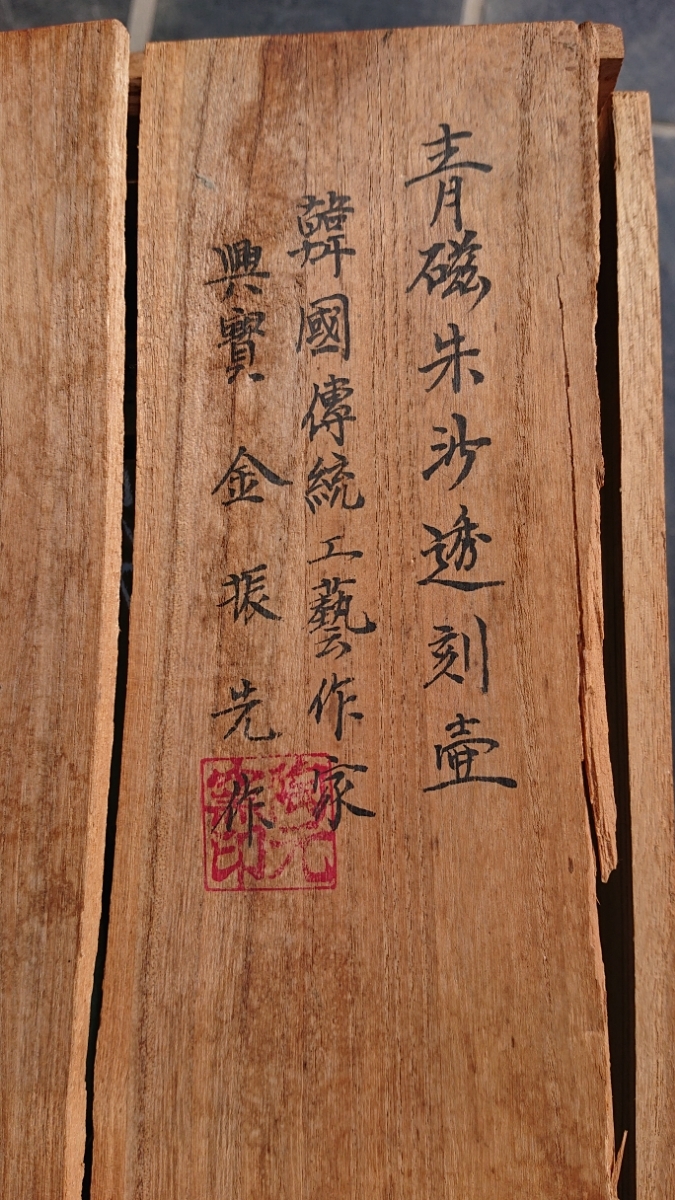 青磁朱沙透刻壷
韓國傳統工藝作家
興寶 金振先作